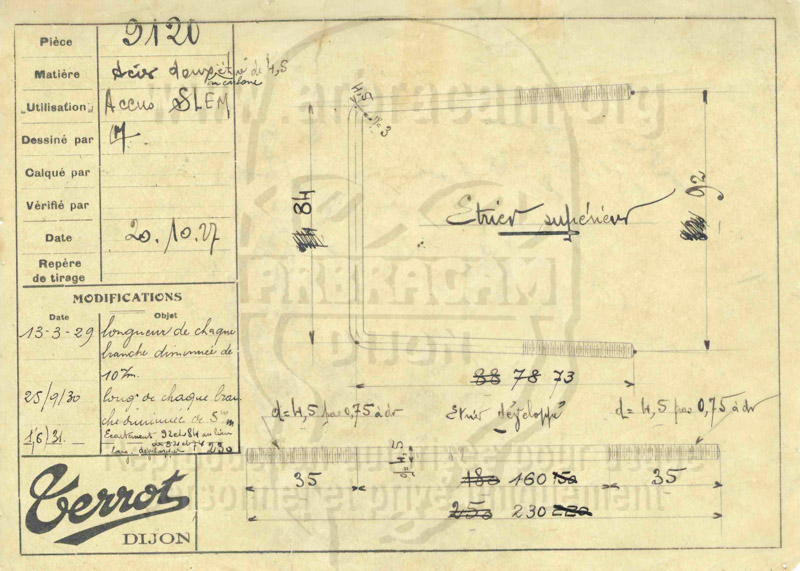 Pièce 9120
Matière Acier doux étiré de 4,5
Utilisation Accus SLEM
Dessiné par
Calqué par
Vérifié par
Date 20.10.27
Repère
de tirage
MODIFICATIONS
Date Objet
13-3-29 longueur de chaque
branche diminuée de
10 m/m.
25/9/30 long. de chaque bran
che diminuée de 5 m/m
1/6/31. Ecartement 92 et 84 au lieu
de 82 et 74
long. développée 230
Terrot
DIJON
www.arbracam.org
ARBRACAM
DIJON
personnel et privé uniquement
d=4,5
r=3
84
92
Etrier supérieur
88 78 73
d=4,5 pas 0,75 à dr
Etrier développé
d=4,5 pas 0,75 à dr
d=4,5
35
180 160 150
35
250 230 220